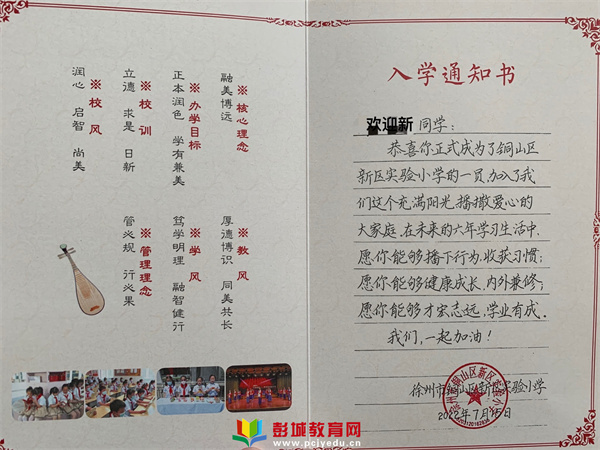 ※核心理念
融美博远
※办学目标
正本润色 学有兼美
※校训
立德 求是 日新
※校风
润心 启智 尚美
※教风
厚德博识 同美共长
※学风
笃学明理 融智健行
※管理理念
管必规 行必果
入学通知书
欢迎新 同学：
恭喜你正式成为了铜山区
新区实验小学的一员,加入了我
们这个充满阳光、播撒爱心的
大家庭,在未来的六年学习生活中,
愿你能够播下行为,收获习惯;
愿你能够健康成长,内外兼修;
愿你能够才宏志远,学业有成.
我们,一起加油!
徐州市铜山区新区实验小学
2022年7月15日
彭城教育网
www.pcjyedu.cn